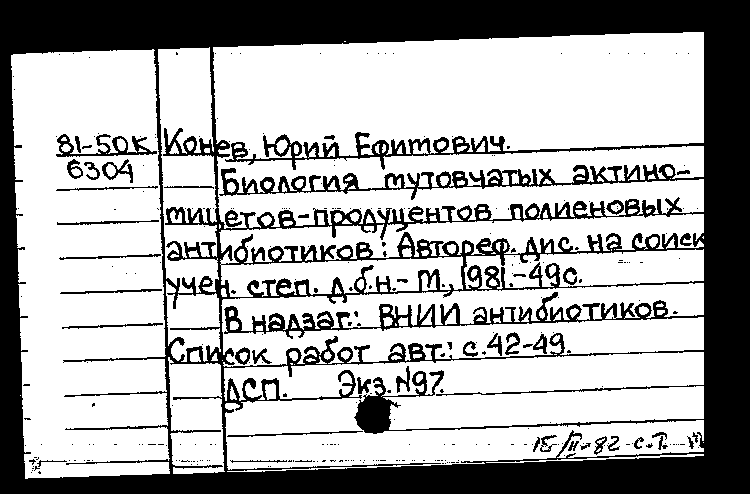 81-50К Конев, Юрий Ефимович.
6304 Биология мутовчатых актино-
мицетов-продуцентов полиеновых
антибиотиков: Автореф. дис. на соиск
учен. степ. д.б.н.- М., 1981.-49с.
В надзаг.: ВНИИ антибиотиков.
Список работ авт.: с.42-49.
ДСП. Экз. N97.
15/II-82 с.т.